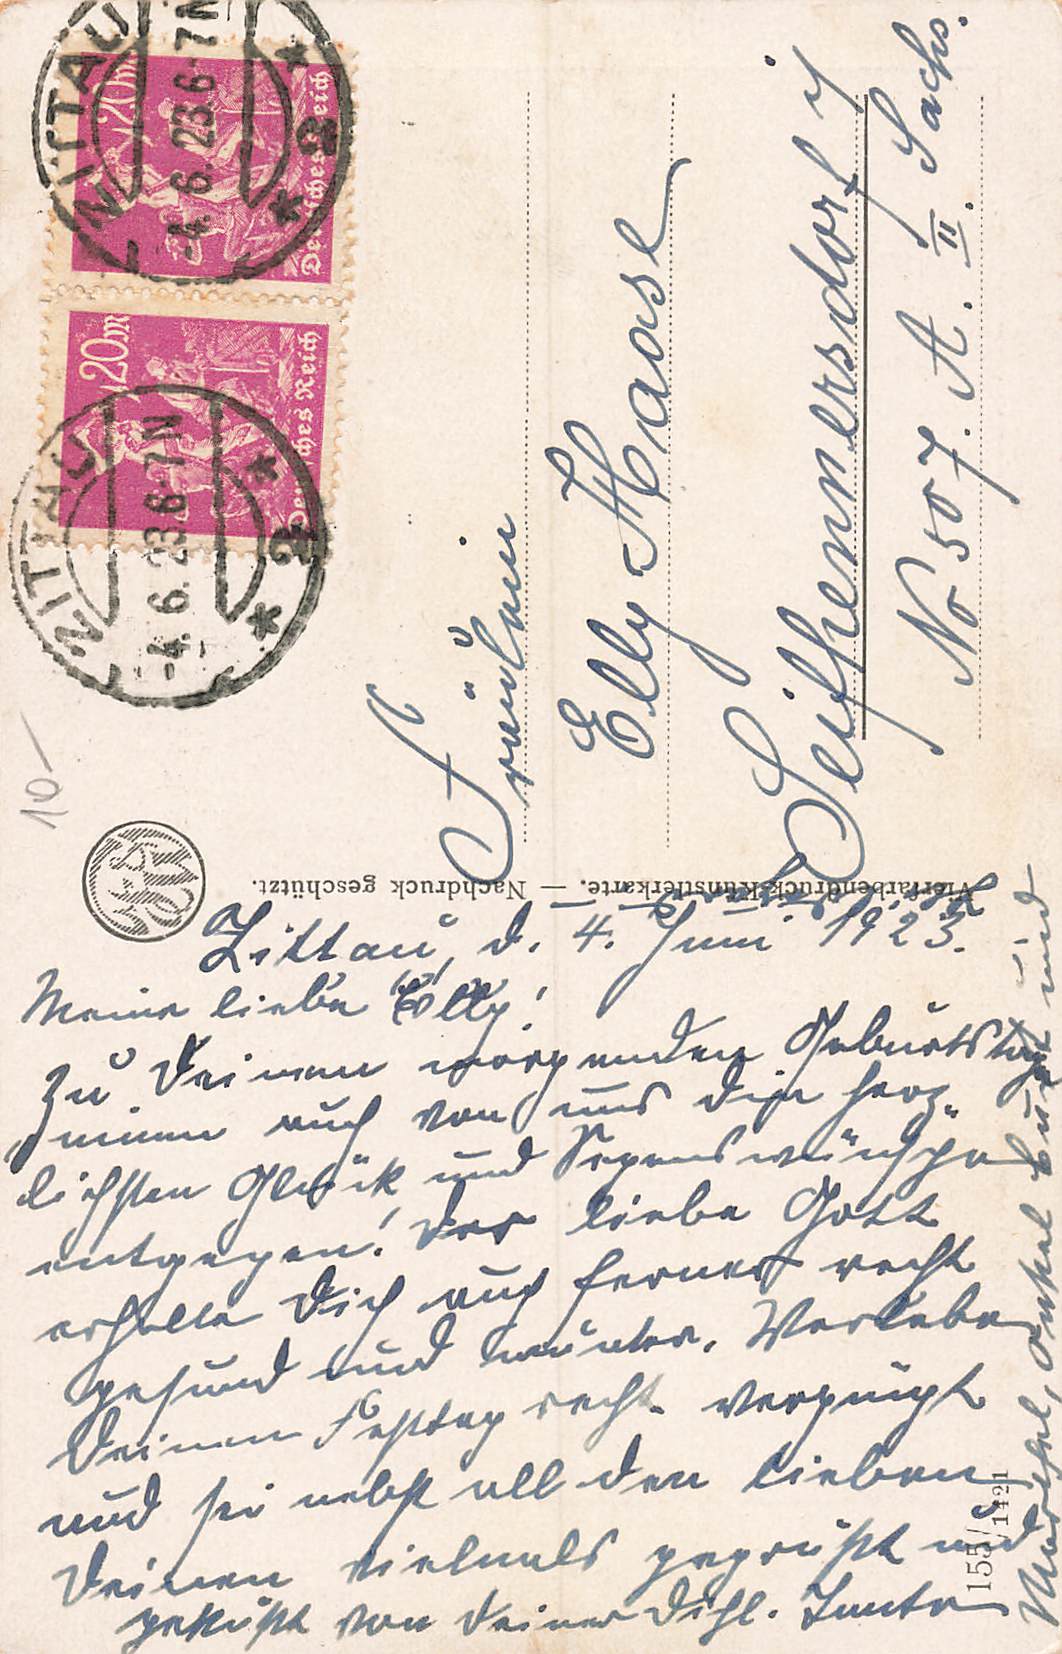 Zittau, d. 4. Juni 1923.
Meine liebe Elly!
Zu Deinem morgenden Geburtstag
nimm auch von uns die herz-
lichsten Glück und Segenswünsche
entgegen! Der liebe Gott
erhalte Dich auch ferner recht
gesund und munter. Verlebe
Deinen Festtag recht vergnügt
und sei nebst all den Lieben
Deinen vielmals gegrüßt und
geküßt von Deiner Dich l. Tante
Onkel Kurt und
Fräulein
Elly Haase
Seifhennersdorf i/
Sachs.
No 507. A. II.
Vierfarbendruck-Künstlerkarte. — Nachdruck geschützt.
155/1421
ZITTAU
-4.6.23.6-7N
* 2 *
ZITTAU
-4.6.23.6-7N
* 2 *
20M
Deutsches Reich
20M
Deutsches Reich
10-